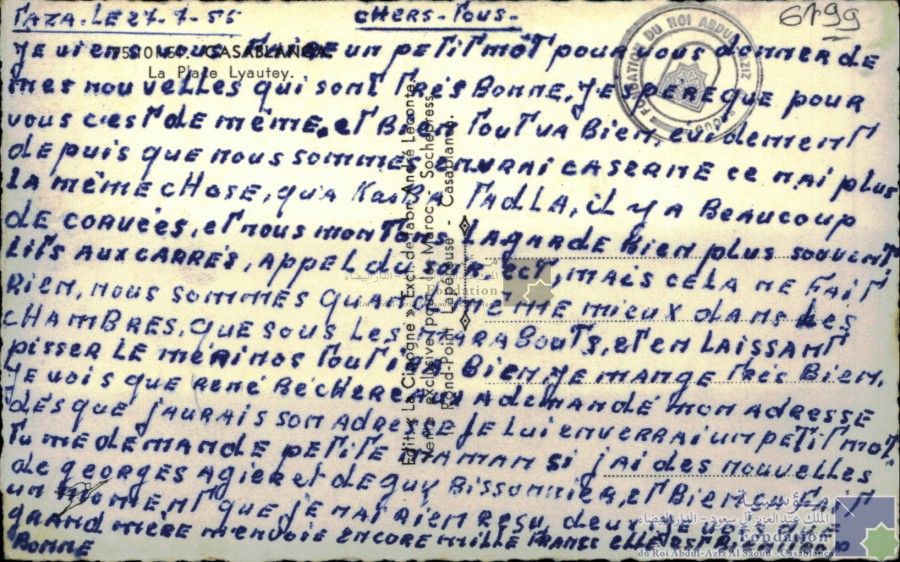 TAZA. LE 27-7-56 CHERS-TOUS-
6199
je viens vous faire un petit mot pour vous donner de
mes nouvelles qui sont très bonne, j'espère que pour
vous c'est de même, et bien tout va bien, évedement
depuis que nous sommes en vrai caserne ce nai plus
la même chose, qu'a Kasba Tadla, il y a beaucoup
de corvées, et nous montons la garde bien plus souvent
lits aux carrés, appel du soir ect, mais cela ne fait
rien, nous sommes quand même mieux dans des
chambres, que sous les marabouts, et en laissant
pisser le mérinos tout ira bien, je mange très bien,
je vois que rené Bécherel a demande mon adresse
des que j'aurais son adresse je lui enverrai un petit mot,
tu me demande petite maman si j'ai des nouvelles
de georges Agier et de guy Bissonnier, et bien cela fait
un moment que je nai rien reçu, deux, je vois que
grand mère m'envoie encore mille francs elle est bien trop
bonne
CASABLANCA
La Place Lyautey.
Édit. « La Cigogne » Excl. de fabr. André Leconte
Vente exclusive pour les Maroc - Sochepress
Rond-Point Lapérouse - Casablanca.
FONDATION DU ROI ABDUL AZIZ
مؤسسة
الملك عبد العزيز آل سعود - الدار البيضاء
Fondation
du Roi Abdul-Aziz Al Saoud - Casablanca